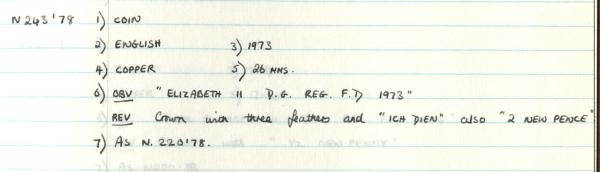 N243'78 1) COIN
2) ENGLISH 3) 1973
4) COPPER 5) 26 MMS.
6) OBV "ELIZABETH II D.G. REG. F.D 1973"
REV Crown with three feathers and "ICH DIEN" also "2 NEW PENCE"
7) AS N.220'78.